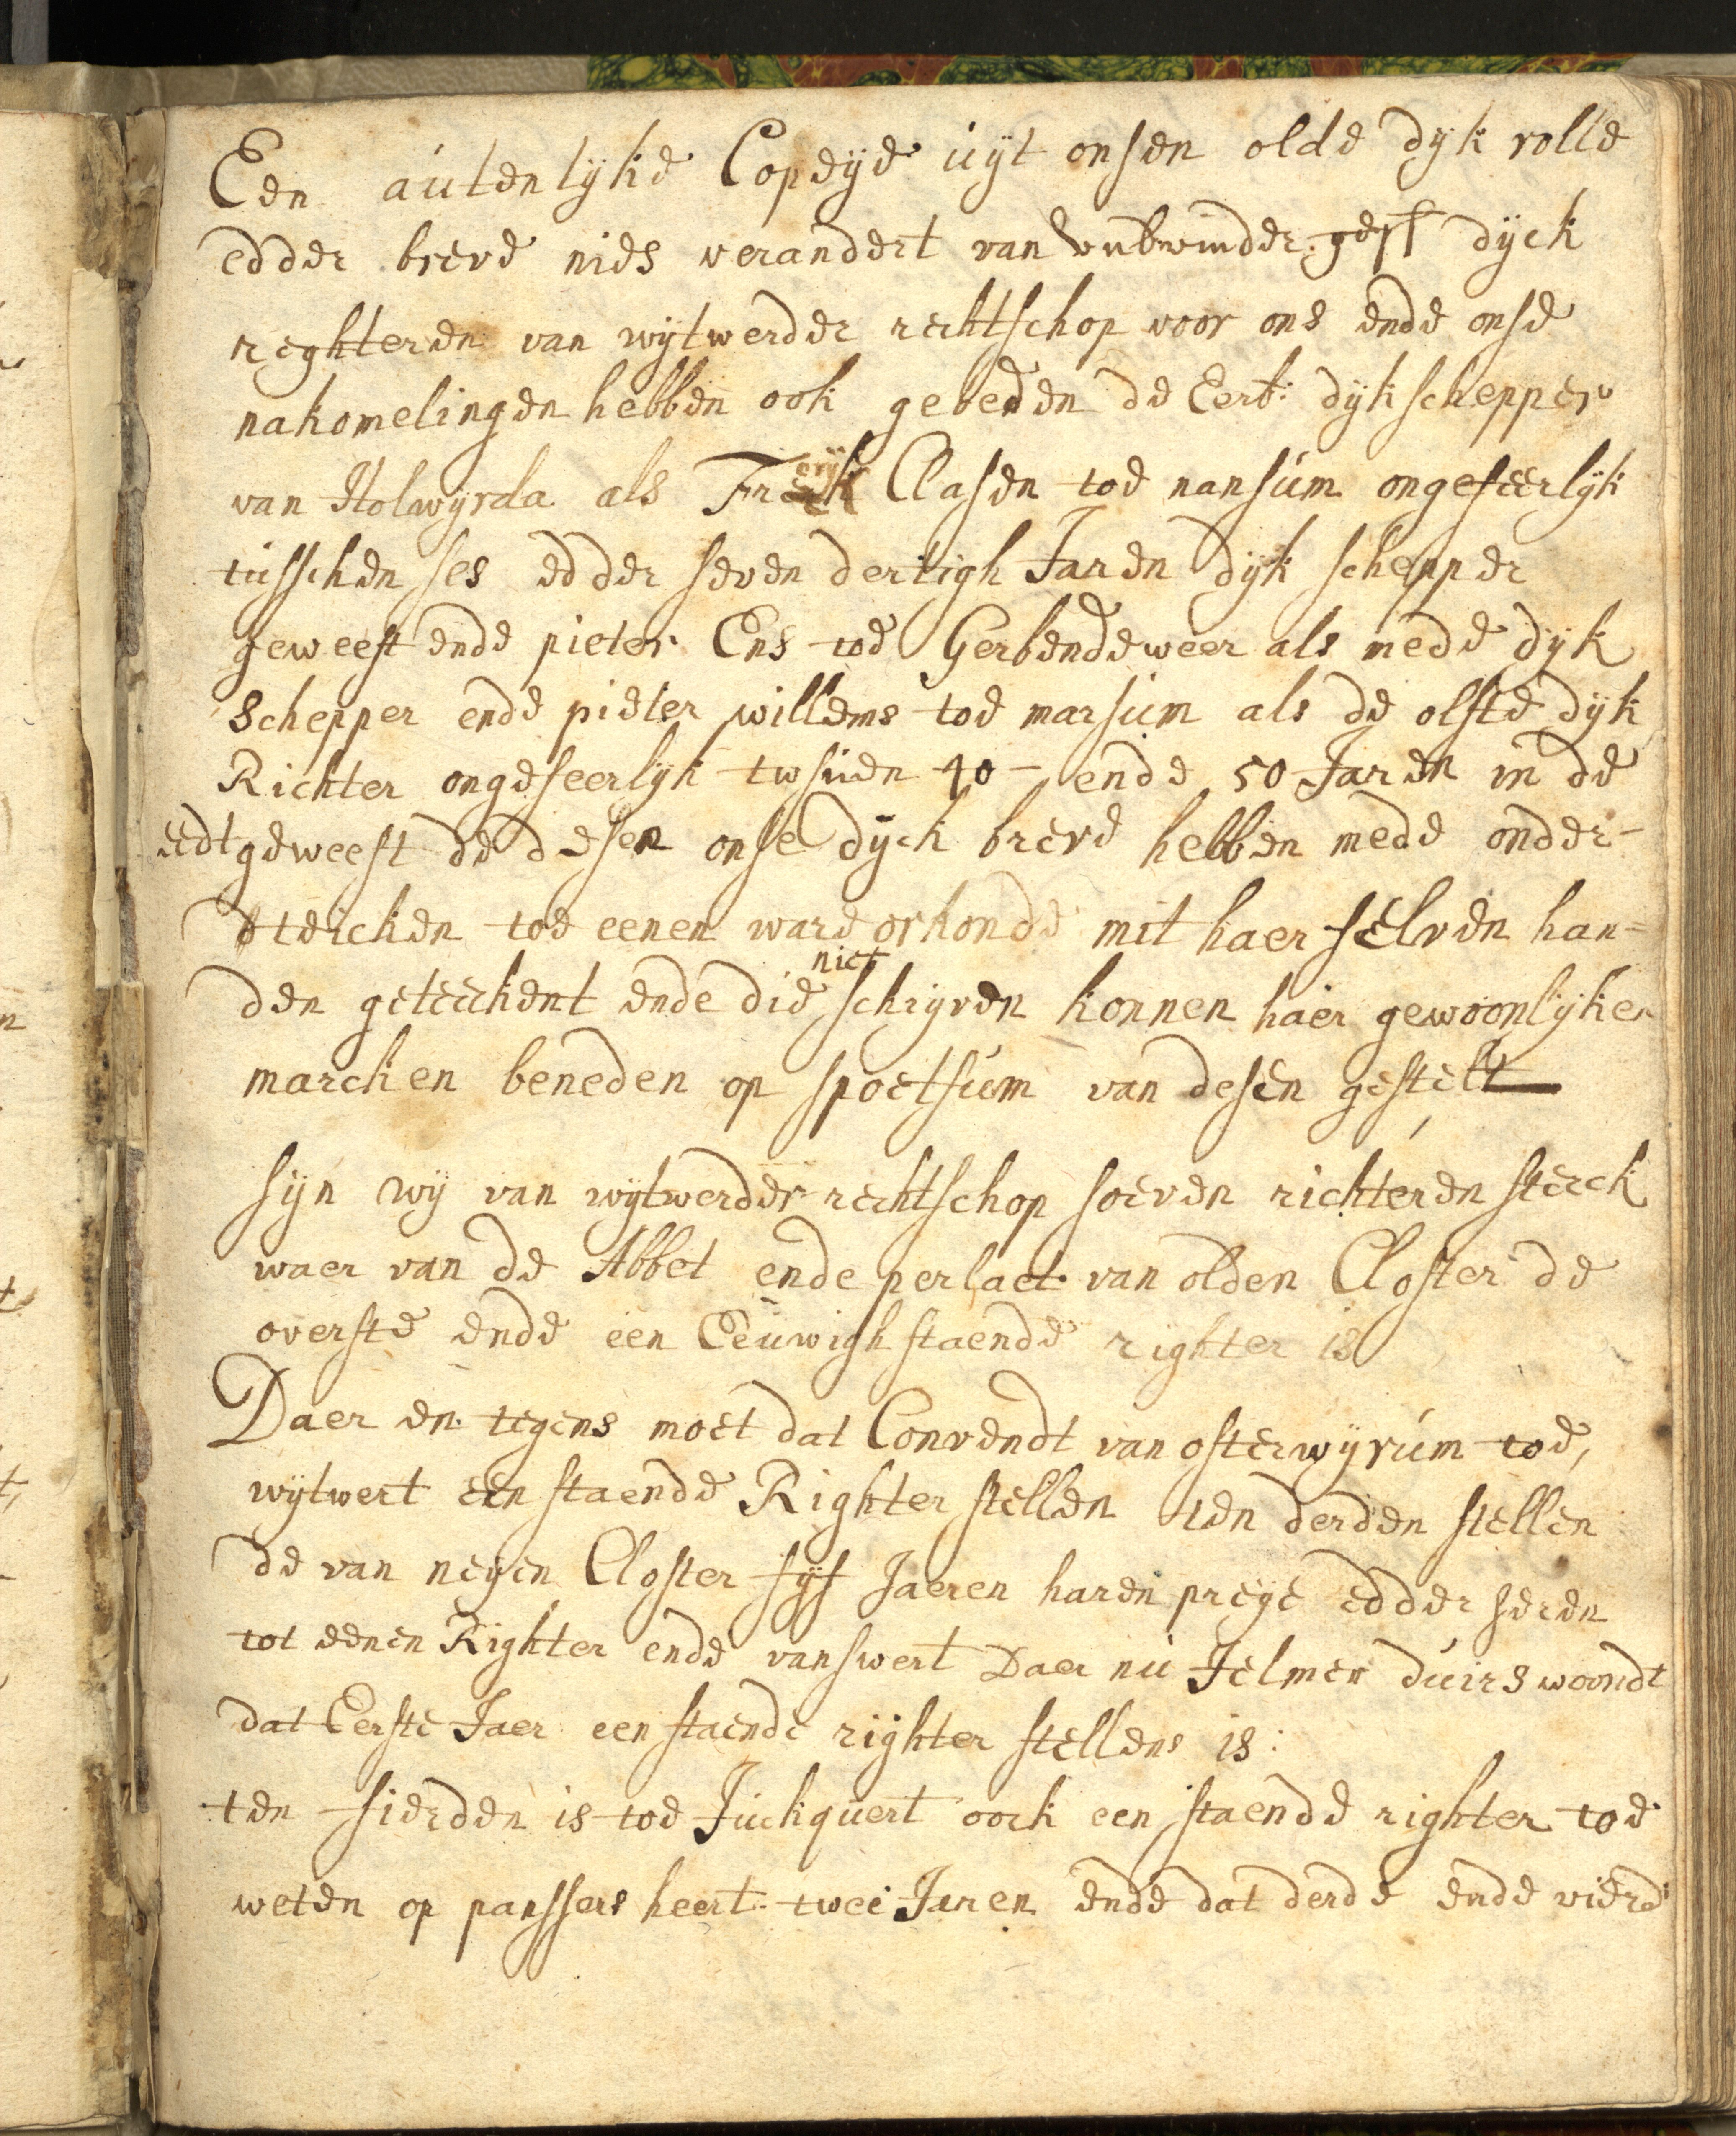 Een autenlijke Copeÿe uÿt onsen olde dijk rolle
edder breve nies verandert van dijck
reghteren van wijtwerder rechtschop voor ons ende onse
nakomelingen hebben ook gebeden de Eerb: dijkschepper
van Holwijrda als Frerijk Clasen toe nansum ongefeerlijk
tusschen ses edder seven dertigh Jaren dijk schepper
geweest ende pieter Ens toe Gerbendeweer als mede dijk
Schepper ende pieter willems toe marsum als de olste dijk
Richter ongefeerlijk twsuen 40 - ende 50 Jaren in de
eedt geweest de desen onse dijck breve hebben mede onder-
teicken toe eenen ware orkonde mit haer selven han=
den geteeckent ende die niet schrijven konnen haer gewoonlijken
marcken beneden op spoetsum van desen gestelt
sijn wij van wijtwerder rechtschop soeven richteren sterck
waer van de Abbet ende perlaet van olden Closter de
overste ende een Eeuwigh staende righter is
Daer en tegens moet dat Convendt van osterwijrum toe,
wijtwert een staende Righter stellen ten derden stellen
de van neyen Closter fijf Jaeren haren preye edder heren
tot eenen Righter ende vanswert Daer nu Jelmer duirs woondt
dat Eerste Jaer een staende righter stellens is:
ten fierden is toe Juckquert oock een staende righter toe
weten op panssers heert twee Jaren ende dat derde ende vierd